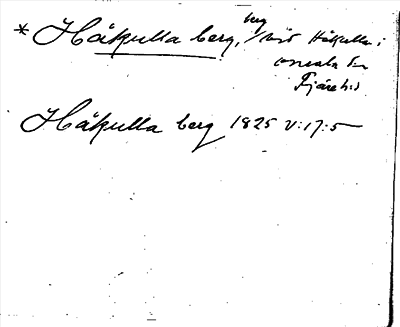 * Håkulla berg, berg vid Håkulla i
Onsala sn
Fjäre hd
Håkulla berg 1825 V:17:5